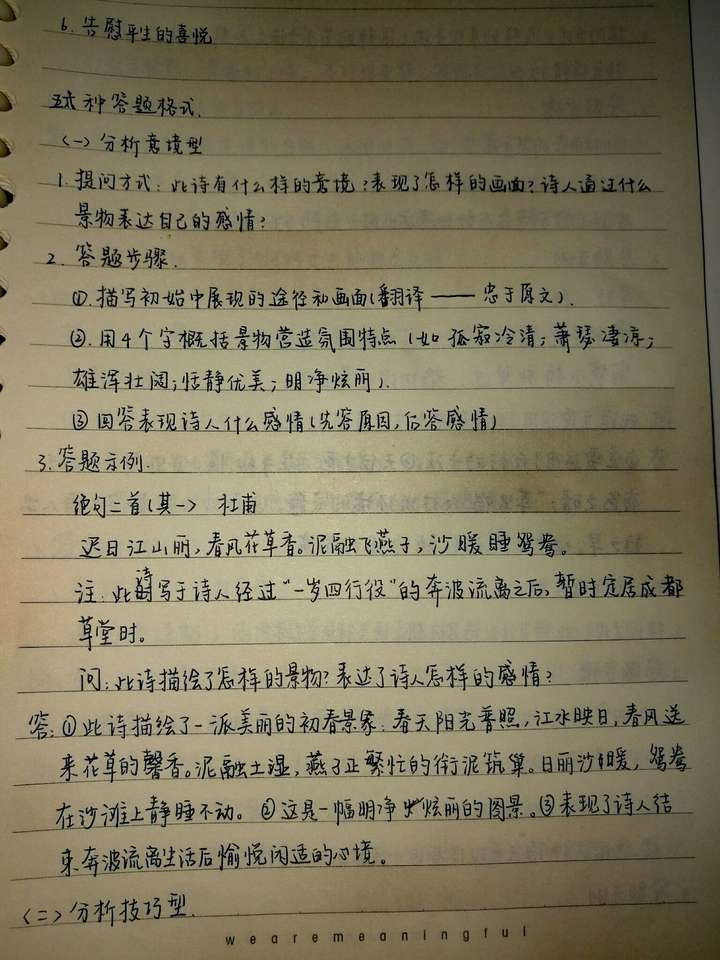 6. 告慰平生的喜悦
五大种答题格式.
〈一〉分析意境型
1. 提问方式: 此诗有什么样的意境?表现了怎样的画面?诗人通过什么
景物表达自己的感情?
2. 答题步骤.
①.描写初始中展现的途径和画面(翻译——忠于原文).
②.用4个字概括景物营造氛围特点(如孤寂冷清;萧瑟凄凉;
雄浑壮阔;恬静优美;明净炫丽).
③回答表现诗人什么感情(先答原因,后答感情)
3. 答题示例.
绝句二首(其一) 杜甫
迟日江山丽,春风花草香。泥融飞燕子,沙暖睡鸳鸯。
注:此诗写于诗人经过“一岁四行役”的奔波流离之后,暂时定居成都
草堂时。
问:此诗描绘了怎样的景物?表达了诗人怎样的感情?
答:①此诗描绘了一派美丽的初春景象:春天阳光普照,江水映日,春风送
来花草的馨香。泥融土湿,燕子正繁忙的衔泥筑巢。日丽沙暖,鸳鸯
在沙滩上静睡不动。②这是一幅明净炫丽的图景。③表现了诗人结
束奔波流离生活后愉悦闲适的心境。
〈二〉分析技巧型.
wearemeaningful